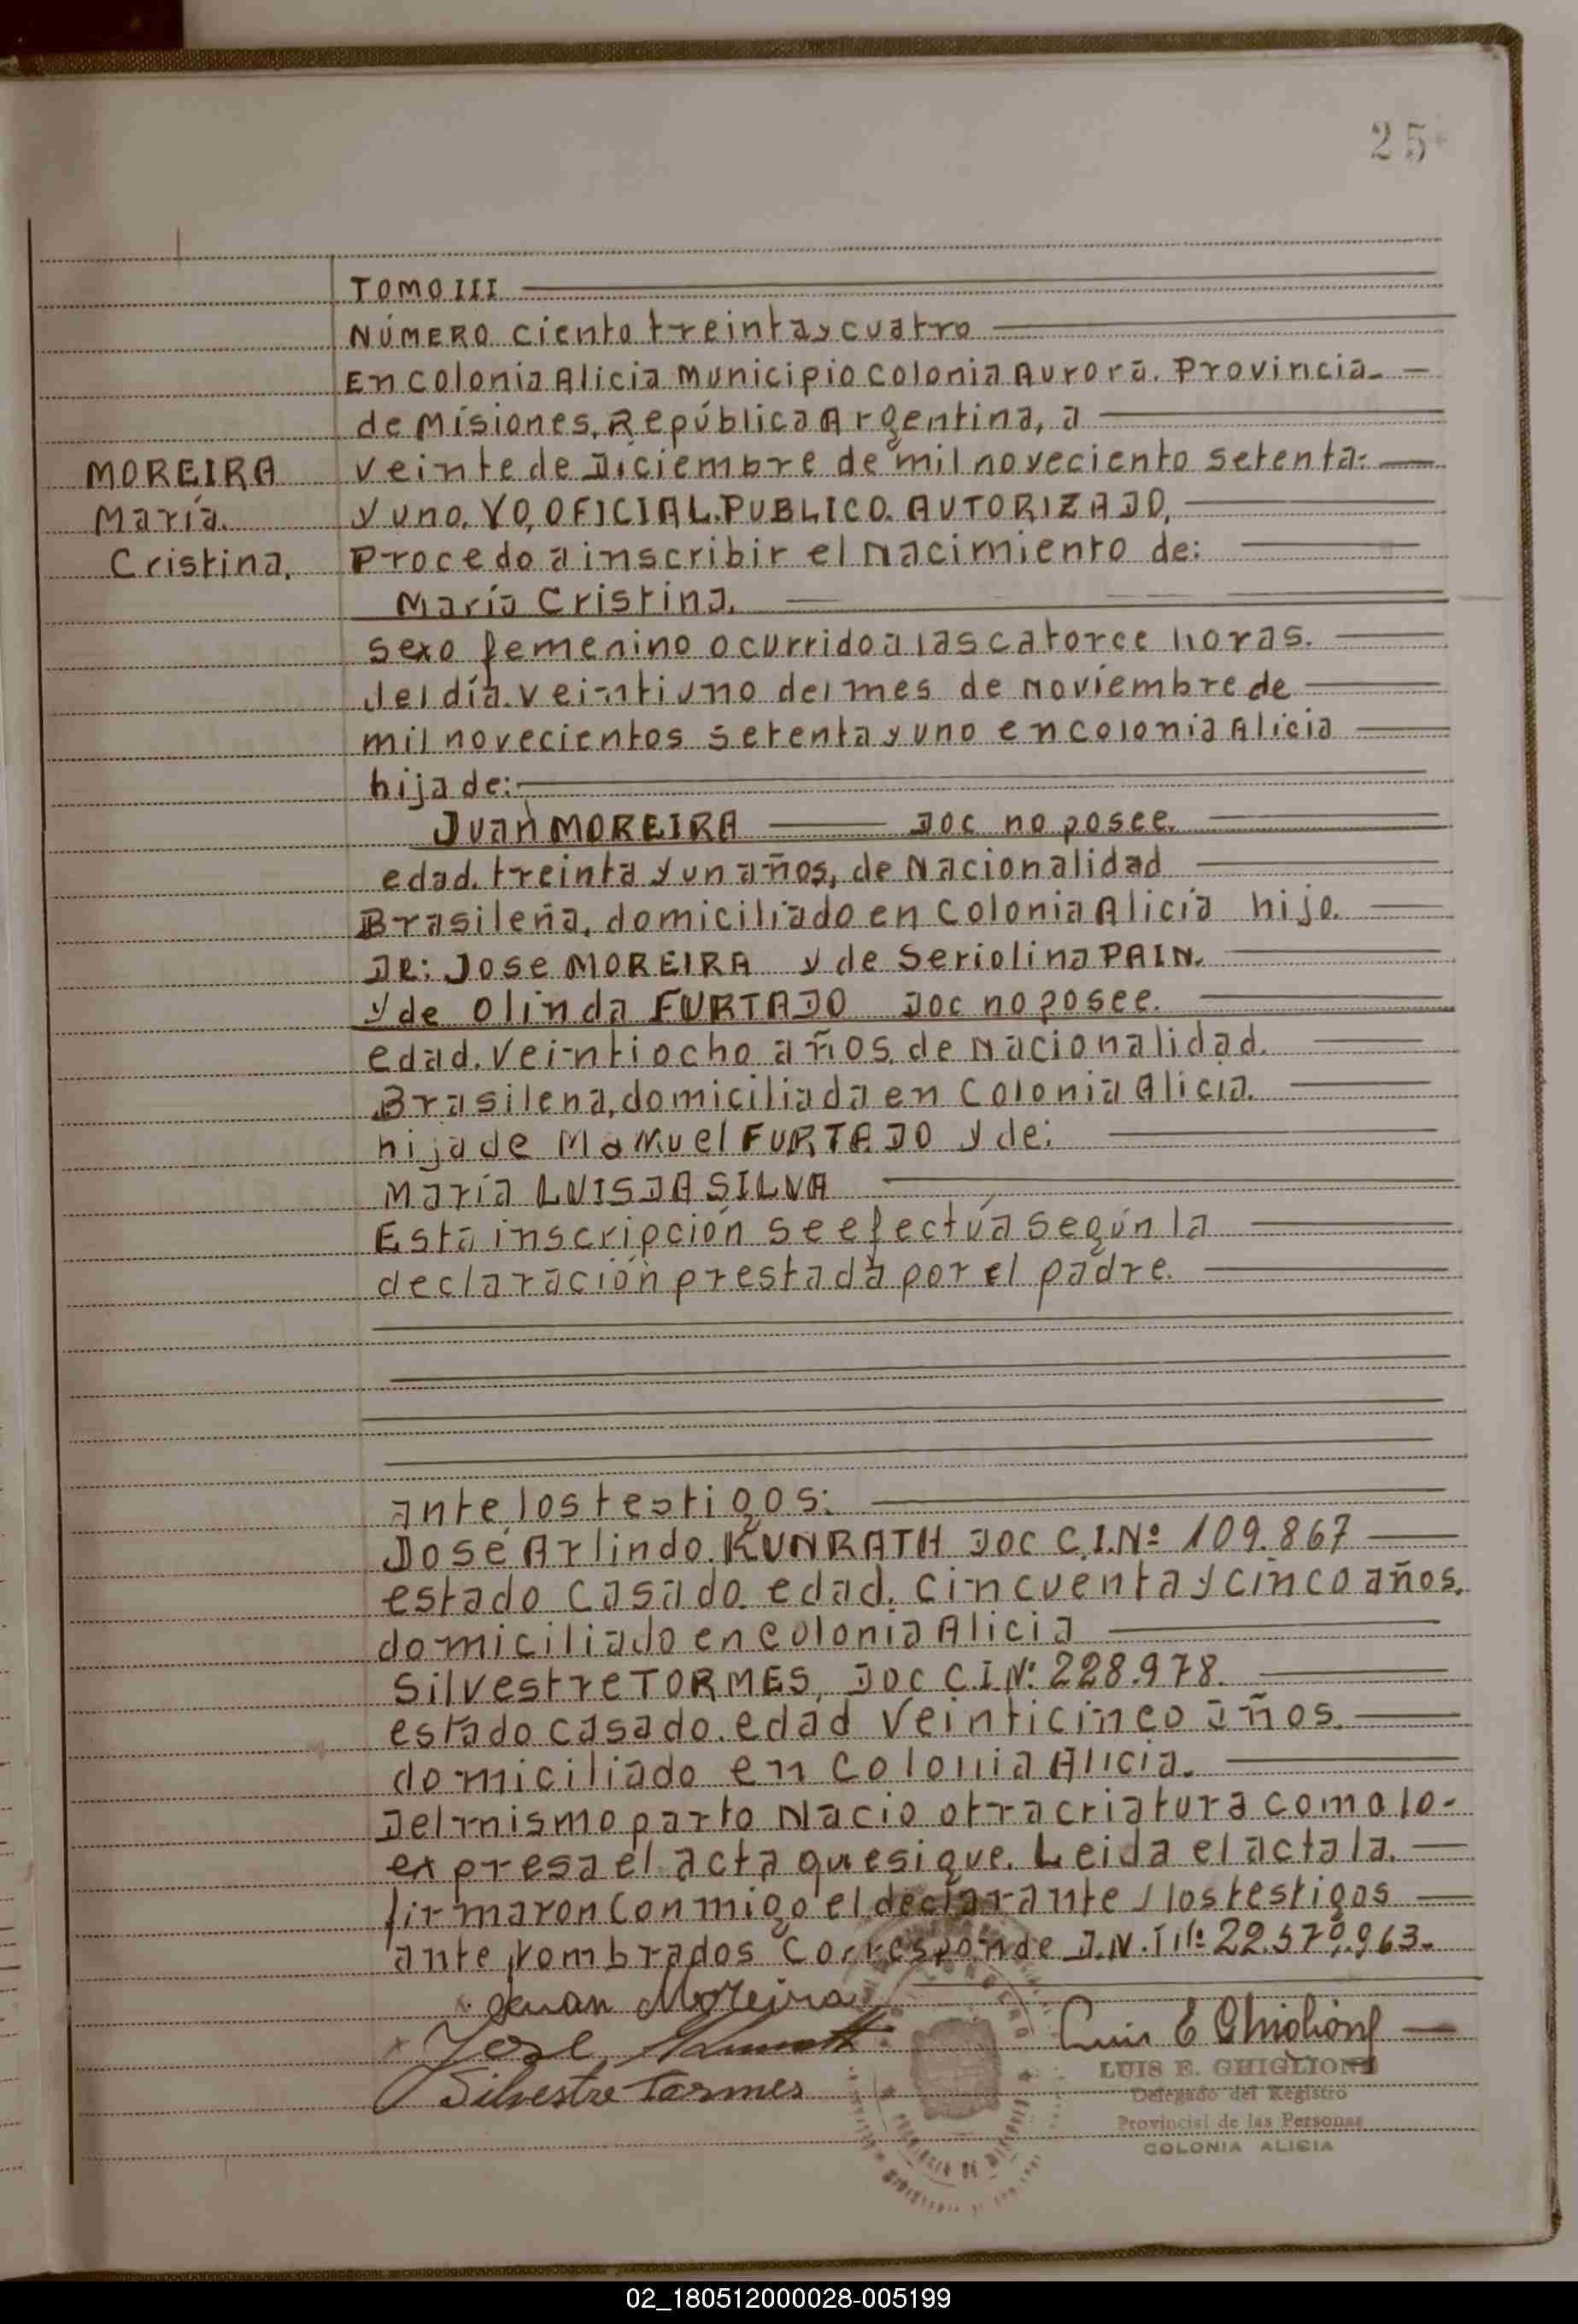 25
TOMO III
NÚMERO ciento treinta y cuatro
En Colonia Alicia Municipio Colonia Aurora. Provincia
de Misiones, República Argentina, a
MOREIRA veinte de Diciembre de mil noveciento setenta
María. y uno. YO, OFICIAL. PUBLICO. AUTORIZADO,
Cristina, Procedo a inscribir el Nacimiento de:
María Cristina.
sexo femenino ocurrido a las catorce horas.
del día veintiuno del mes de Noviembre de
mil novecientos setenta y uno en Colonia Alicia
hija de:
Juan MOREIRA Doc no posee.
edad. treinta y un años, de Nacionalidad
Brasileña, domiciliado en Colonia Alicia hijo.
De: Jose MOREIRA y de Seriolina PAIN.
y de Olinda FURTADO Doc no posee.
edad. veintiocho años. de Nacionalidad.
Brasilena, domiciliada en Colonia Alicia.
hija de Manuel FURTADO y de:
María LUISDA SILVA
Esta inscripción se efectúa según la
declaración prestada por el padre.
ante los testigos:
José Arlindo. KUNRATH Doc C.I.Nº 109.867
estado casado. edad. cincuenta y cinco años.
domiciliado en Colonia Alicia
Silvestre TORMES, Doc C.I.Nº 228.978.
estado casado. edad veinticinco años.
domiciliado en Colonia Alicia.
Del mismo parto Nacio otra criatura como lo-
expresa el acta que sigue. Leida el acta la.
firmaron conmigo el declarante y los testigos
ante nombrados Corresponde D.N.I Nº 22.570.963.
Juan Moreira
José
Silvestre Tormes
Luis E Ghiglione
LUIS E. GHIGLIONE
Delegado del Registro
Provincial de las Personas
COLONIA ALICIA
02_180512000028-005199